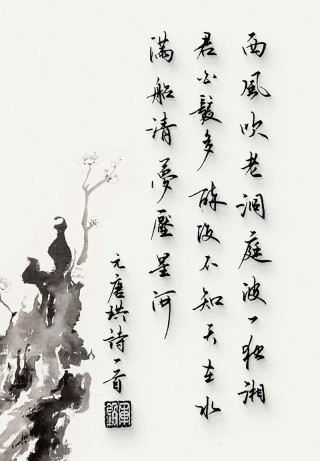 西風吹老洞庭波一夜湘
君白髮多醉後不知天在水
滿船清夢壓星河
元唐珙詩一首